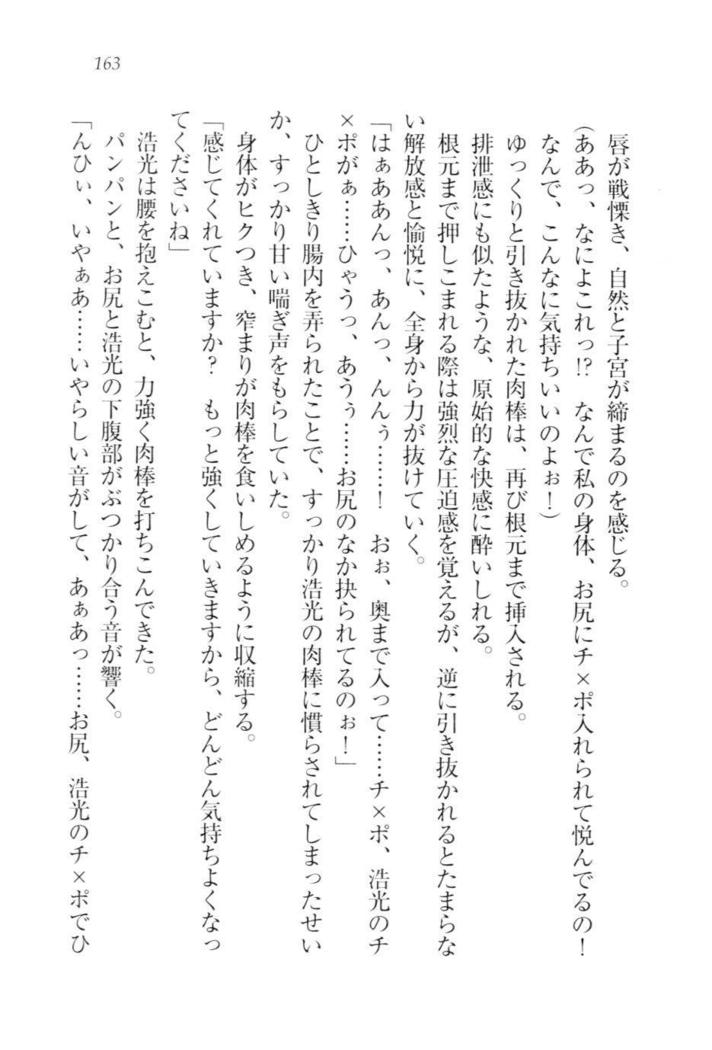 163
唇が戦慄き、自然と子宮が締まるのを感じる。
(ああっ、なによこれっ!?　なんで私の身体、お尻にチ×ポ入れられて悦んでるの！
なんで、こんなに気持ちいいのよぉ！)
ゆっくりと引き抜かれた肉棒は、再び根元まで挿入される。
排泄感にも似たような、原始的な快感に酔いしれる。
根元まで押しこまれる際は強烈な圧迫感を覚えるが、逆に引き抜かれるとたまらな
い解放感と愉悦に、全身から力が抜けていく。
「はぁああんっ、あんっ、んんぅ……！　おぉ、奥まで入って……チ×ポ、浩光のチ
×ポがぁ……ひゃうっ、あうぅ……お尻のなか抉られてるのぉ！」
ひとしきり腸内を弄られたことで、すっかり浩光の肉棒に慣らされてしまったせい
か、すっかり甘い喘ぎ声をもらしていた。
身体がヒクつき、窄まりが肉棒を食いしめるように収縮する。
「感じてくれていますか？　もっと強くしていきますから、どんどん気持ちよくなっ
てくださいね」
浩光は腰を抱えこむと、力強く肉棒を打ちこんできた。
パンパンと、お尻と浩光の下腹部がぶつかり合う音が響く。
「んひぃ、いやぁあ……いやらしい音がして、あぁあっ……お尻、浩光のチ×ポでひ